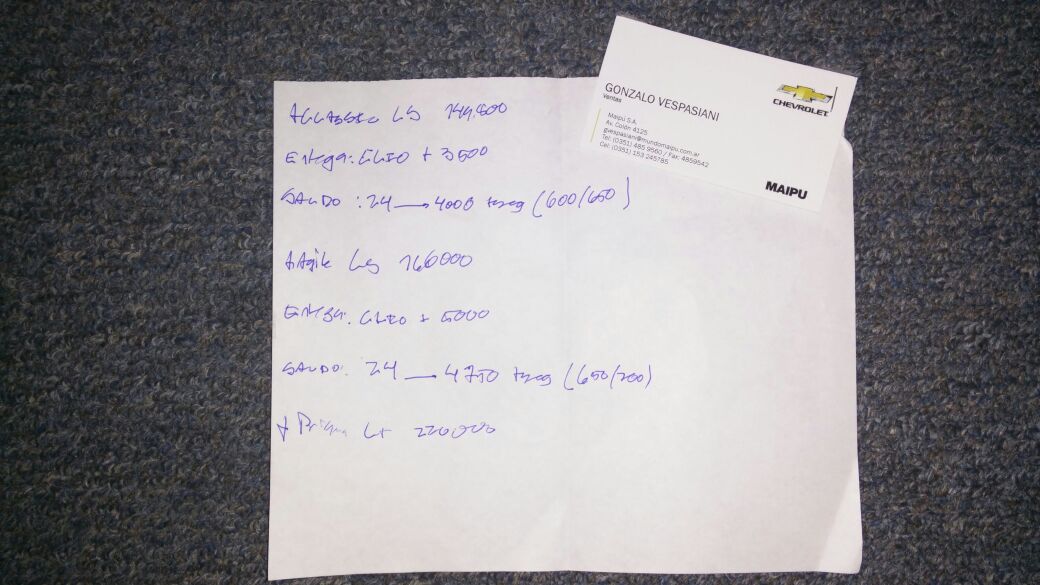 +CLASSIC LS 149.800
Entega: CLIO + 3500
SALDO : 24 → 4000 + seg (600/650)
+Agile LS 160000
Entega: CLIO + 5000
SALDO: 24 — 4750 + seg (650/700)
+ Prisma LT 220000
GONZALO VESPASIANI
Ventas
Maipú S.A.
Av. Colón 4125
gvespasiani@mundomaipu.com.ar
Tel: (0351) 485 9560 / Fax: 4859542
Cel: (0351) 153 245785
CHEVROLET
MAIPU